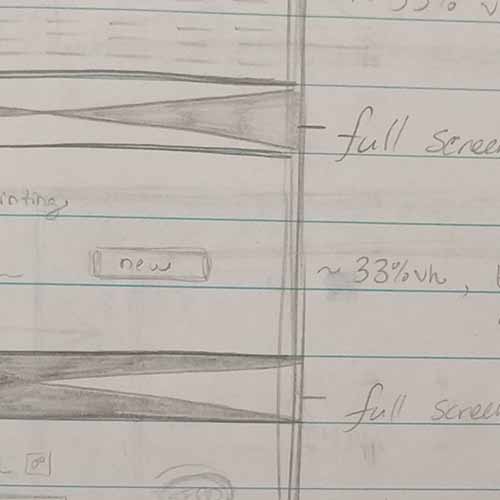 33% v
full screen
inting,
new
~ 33%vh,
full screen